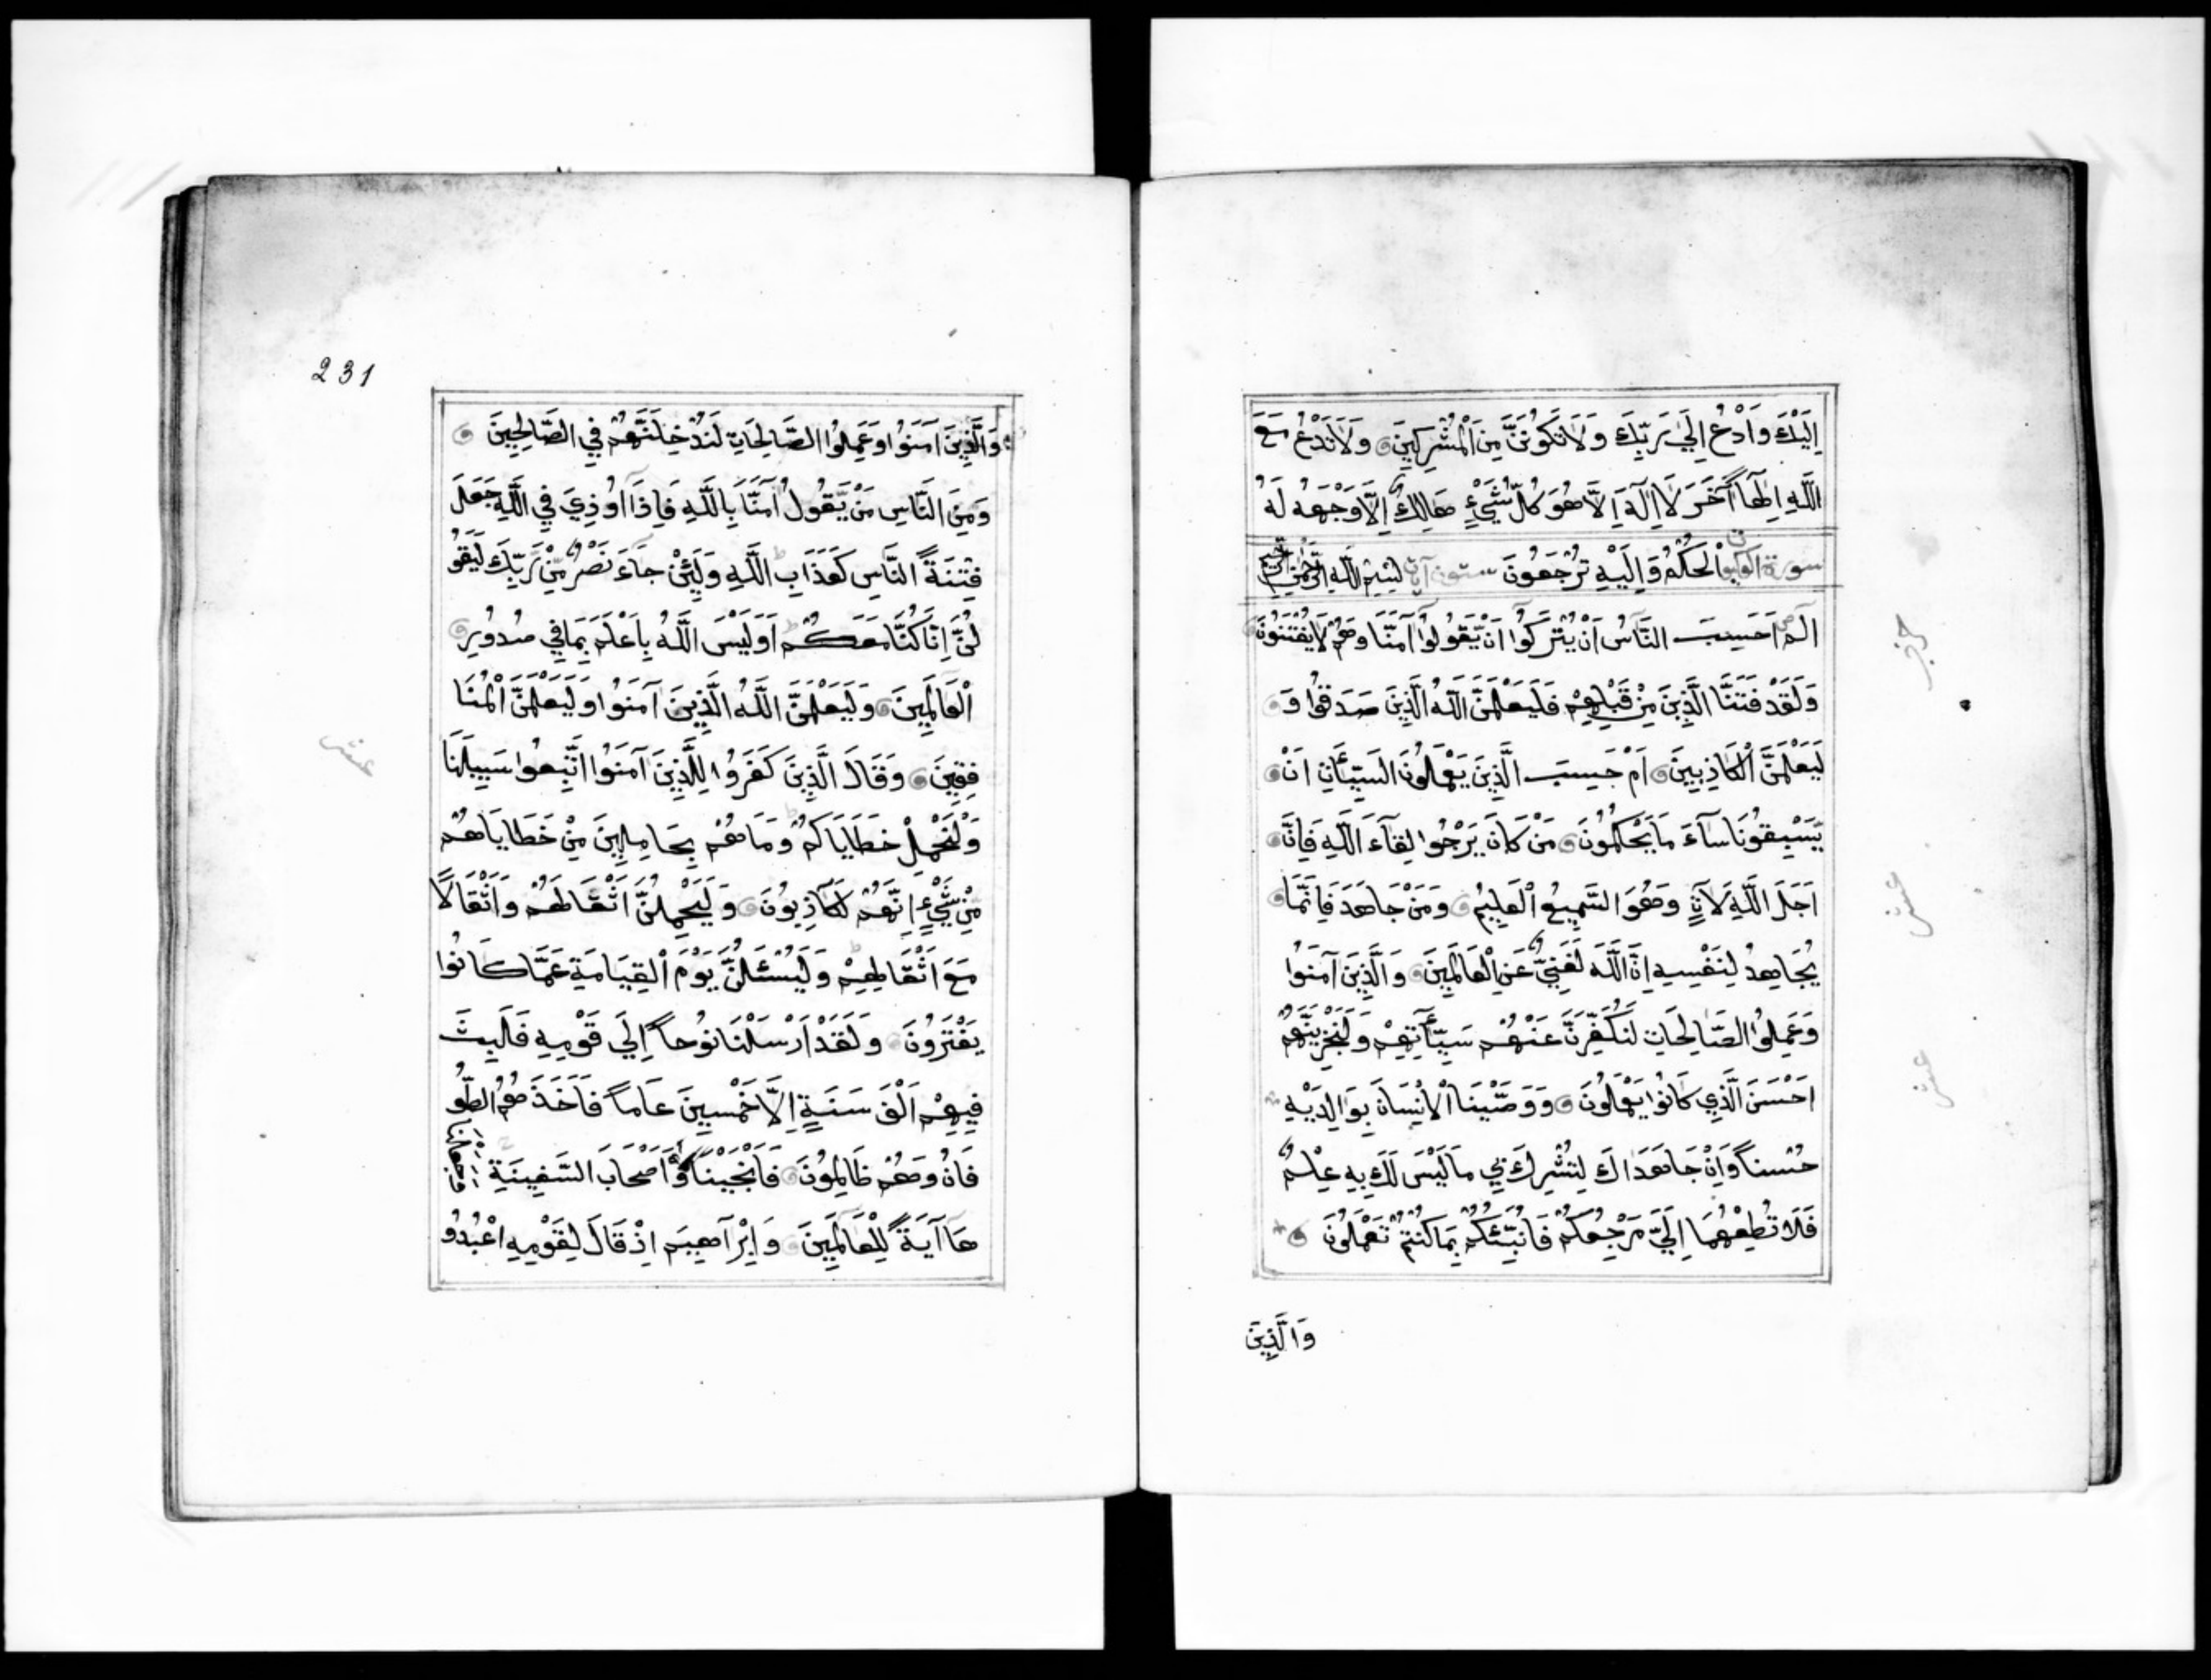 اِلَيْكَ وَادْعُ اِلَي رَبِّكَ وَلَا تَكُونَنَّ مِنَ الْمُشْرِكِينَ وَلَا تَدْعُ مَعَ
اللَّهِ اِلَهًا آخَرَ لَا اِلَهَ اِلَّا هُوَ كُلُّ شَيْءٍ هَالِكٌ اِلَّا وَجْهَهُ لَهُ
سورة العنكبوت الْحُكْمُ وَاِلَيْهِ تُرْجَعُونَ ستون آيات بِسْمِ اللَّهِ الرَّحْمٰنِ الرَّحِيمِ
الٓمٓ اَحَسِبَ النَّاسُ اَنْ يُتْرَكُوا اَنْ يَقُولُوا آمَنَّا وَهُمْ لَا يُفْتَنُونَ
وَلَقَدْ فَتَنَّا الَّذِينَ مِنْ قَبْلِهِمْ فَلَيَعْلَمَنَّ اللَّهُ الَّذِينَ صَدَقُوا وَ
لَيَعْلَمَنَّ الْكَاذِبِينَ اَمْ حَسِبَ الَّذِينَ يَعْمَلُونَ السَّيِّئَاتِ اَنْ
يَسْبِقُونَا سَآءَ مَا يَحْكُمُونَ مَنْ كَانَ يَرْجُوا لِقَآءَ اللَّهِ فَاِنَّ
اَجَلَ اللَّهِ لَآتٍ وَهُوَ السَّمِيعُ الْعَلِيمُ وَمَنْ جَاهَدَ فَاِنَّمَا
يُجَاهِدُ لِنَفْسِهِ اِنَّ اللَّهَ لَغَنِيٌّ عَنِ الْعَالَمِينَ وَالَّذِينَ آمَنُوا
وَعَمِلُوا الصَّالِحَاتِ لَنُكَفِّرَنَّ عَنْهُمْ سَيِّآتِهِمْ وَلَنَجْزِيَنَّهُمْ
اَحْسَنَ الَّذِي كَانُوا يَعْمَلُونَ وَوَصَّيْنَا الْاِنْسَانَ بِوَالِدَيْهِ
حُسْناً وَاِنْ جَاهَدَاكَ لِتُشْرِكَ بِي مَا لَيْسَ لَكَ بِهِ عِلْمٌ
فَلَا تُطِعْهُمَا اِلَيَّ مَرْجِعُكُمْ فَاُنَبِّئُكُمْ بِمَا كُنْتُمْ تَعْمَلُونَ
وَالَّذِينَ
حزب
عشر
عشر
231
وَالَّذِينَ آمَنُوا وَعَمِلُوا الصَّالِحَاتِ لَنُدْخِلَنَّهُمْ فِي الصَّالِحِينَ
وَمِنَ النَّاسِ مَنْ يَّقُولُ آمَنَّا بِاللَّهِ فَاِذَا اُوذِيَ فِي اللَّهِ جَعَلَ
فِتْنَةَ النَّاسِ كَعَذَابِ اللَّهِ وَلَئِنْ جَآءَ نَصْرٌ مِّنْ رَبِّكَ لَيَقُو
لُنَّ اِنَّا كُنَّا مَعَكُمْ اَوَلَيْسَ اللَّهُ بِاَعْلَمَ بِمَا فِي صُدُورِ
الْعَالَمِينَ وَلَيَعْلَمَنَّ اللَّهُ الَّذِينَ آمَنُوا وَلَيَعْلَمَنَّ الْمُنَا
فِقِينَ وَقَالَ الَّذِينَ كَفَرُوا لِلَّذِينَ آمَنُوا اتَّبِعُوا سَبِيلَنَا
وَلْنَحْمِلْ خَطَايَاكُمْ وَمَا هُمْ بِحَامِلِينَ مِنْ خَطَايَاهُمْ
مِنْ شَيْءٍ اِنَّهُمْ لَكَاذِبُونَ وَلَيَحْمِلُنَّ اَثْقَالَهُمْ وَاَثْقَالًا
مَعَ اَثْقَالِهِمْ وَلَيُسْئَلُنَّ يَوْمَ الْقِيَامَةِ عَمَّا كَانُوا
يَفْتَرُونَ وَلَقَدْ اَرْسَلْنَا نُوحاً اِلَي قَوْمِهِ فَلَبِثَ
فِيهِمْ اَلْفَ سَنَةٍ اِلَّا خَمْسِينَ عَاماً فَاَخَذَهُمُ الطُّو
فَانُ وَهُمْ ظَالِمُونَ فَاَنْجَيْنَاهُ وَاَصْحَابَ السَّفِينَةِ وَجَعَلْنَا
هَا آيَةً لِلْعَالَمِينَ وَاِبْرَاهِيمَ اِذْ قَالَ لِقَوْمِهِ اعْبُدُو
عشر